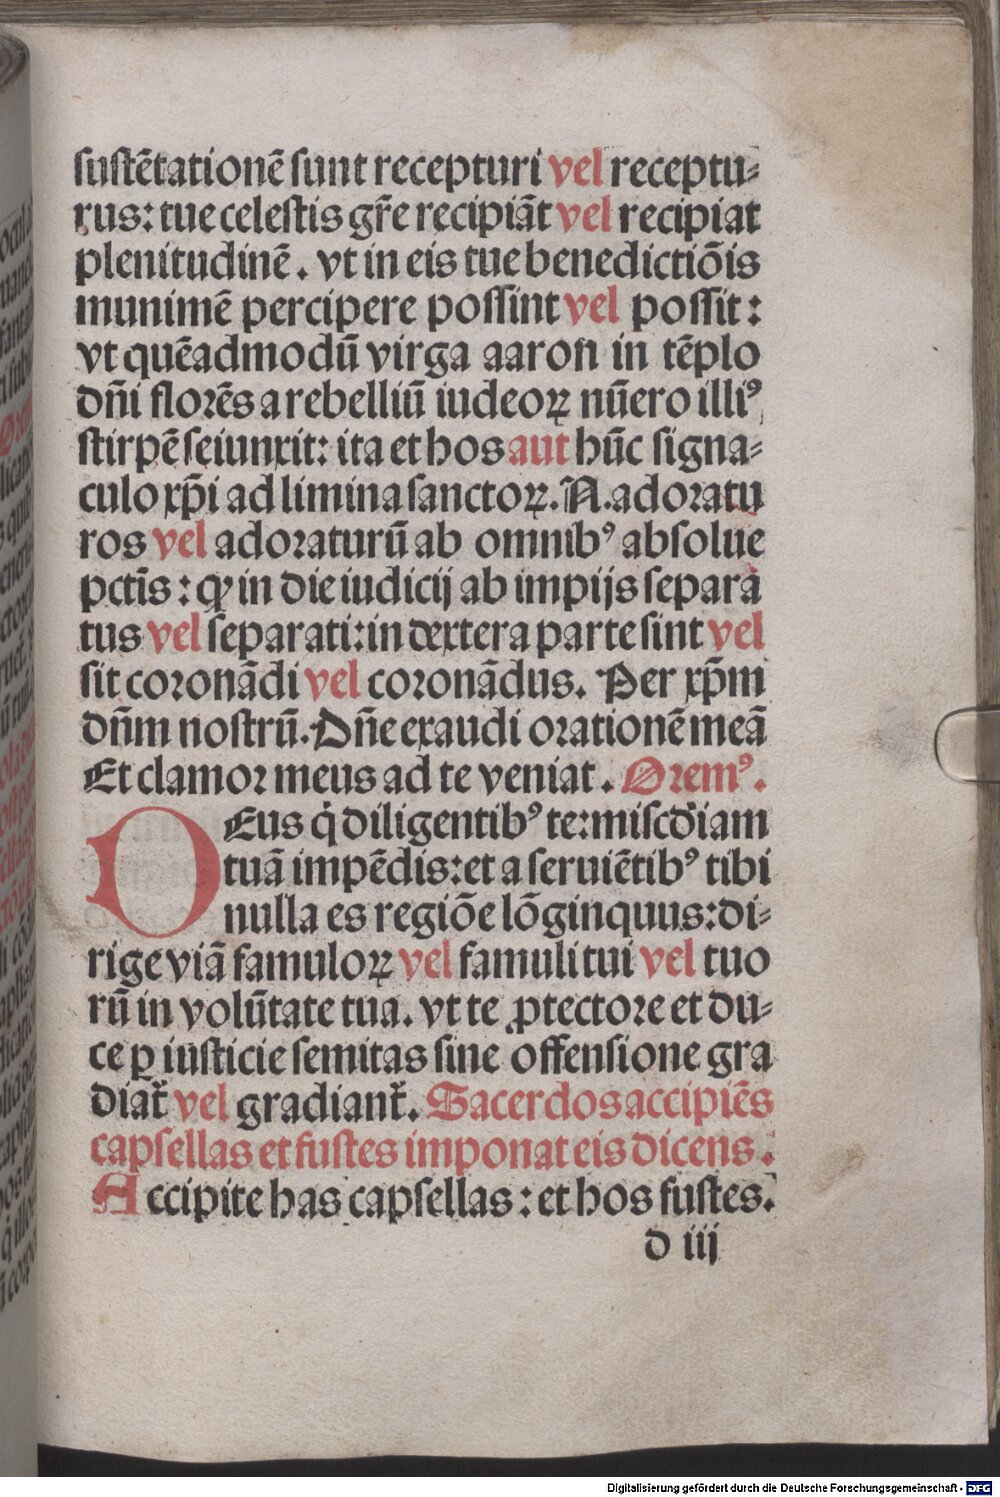 ſuſtētationē ſunt recepturi vel receptu⸗
rus: tue celeſtis gr̄e recipiāt vel recipiat
plenitudinē. vt in eis tue benedictiōis
munimē percipere poſſint vel poſſit:
vt quēadmodū virga aaron in tēplo
dn̄i florēs a rebelliū iudeoꝝ nūero illiꝰ
ſtirpē ſeiunxit: ita et hos aut hūc ſigna⸗
culo xp̄i ad limina ſanctoꝝ. N. adoratu
ros vel adoraturū ab omnibꝰ abſolue
pctīs: ꝙ in die iudicij ab impijs ſepara
tus vel ſeparati: in dextera parte ſint vel
ſit coronādi vel coronādus. Per xp̄m
dn̄m noſtrū. Dn̄e exaudi orationē meā
Et clamor meus ad te veniat. Oremꝰ.
DEus q̇ diligentibꝰ te: miſcd̄iam
tuā impēdis: et a ſeruiētibꝰ tibi
nulla es regiōe lōginquus: di⸗
rige viā famuloꝝ vel famuli tui vel tuo
rū in volūtate tua. vt te ꝓtectore et du⸗
ce ꝑ iuſticie ſemitas ſine offenſione gra
diat᷑ vel gradiant᷑. Sacerdos accipiēs
capſellas et fuſtes imponat eis dicens.
Accipite has capſellas: et hos fuſtes.
d iij
Digitalisierung gefördert durch die Deutsche Forschungsgemeinschaft - DFG